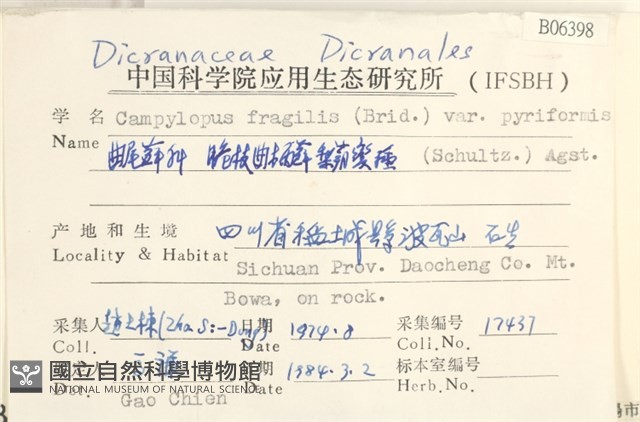 B06398
Dicranaceae Dicranales
中国科学院应用生态研究所 (IFSBH)
学名 Campylopus fragilis (Brid.) var. pyriformis
Name 曲尾藓科 脆枝曲柄藓梨蒴变种 (Schultz.) Agst.
产地和生境 四川省稻城县波瓦山 石生
Locality & Habitat Sichuan Prov. Daocheng Co. Mt.
Bowa, on rock.
采集人 日期 1974.8 采集编号 17437
Coll. Date Coll.No.
期 1984.3.2 标本室编号
Date Herb.No.
國立自然科學博物館
NATIONAL MUSEUM OF NATURAL SCIENCE
Gao Chien